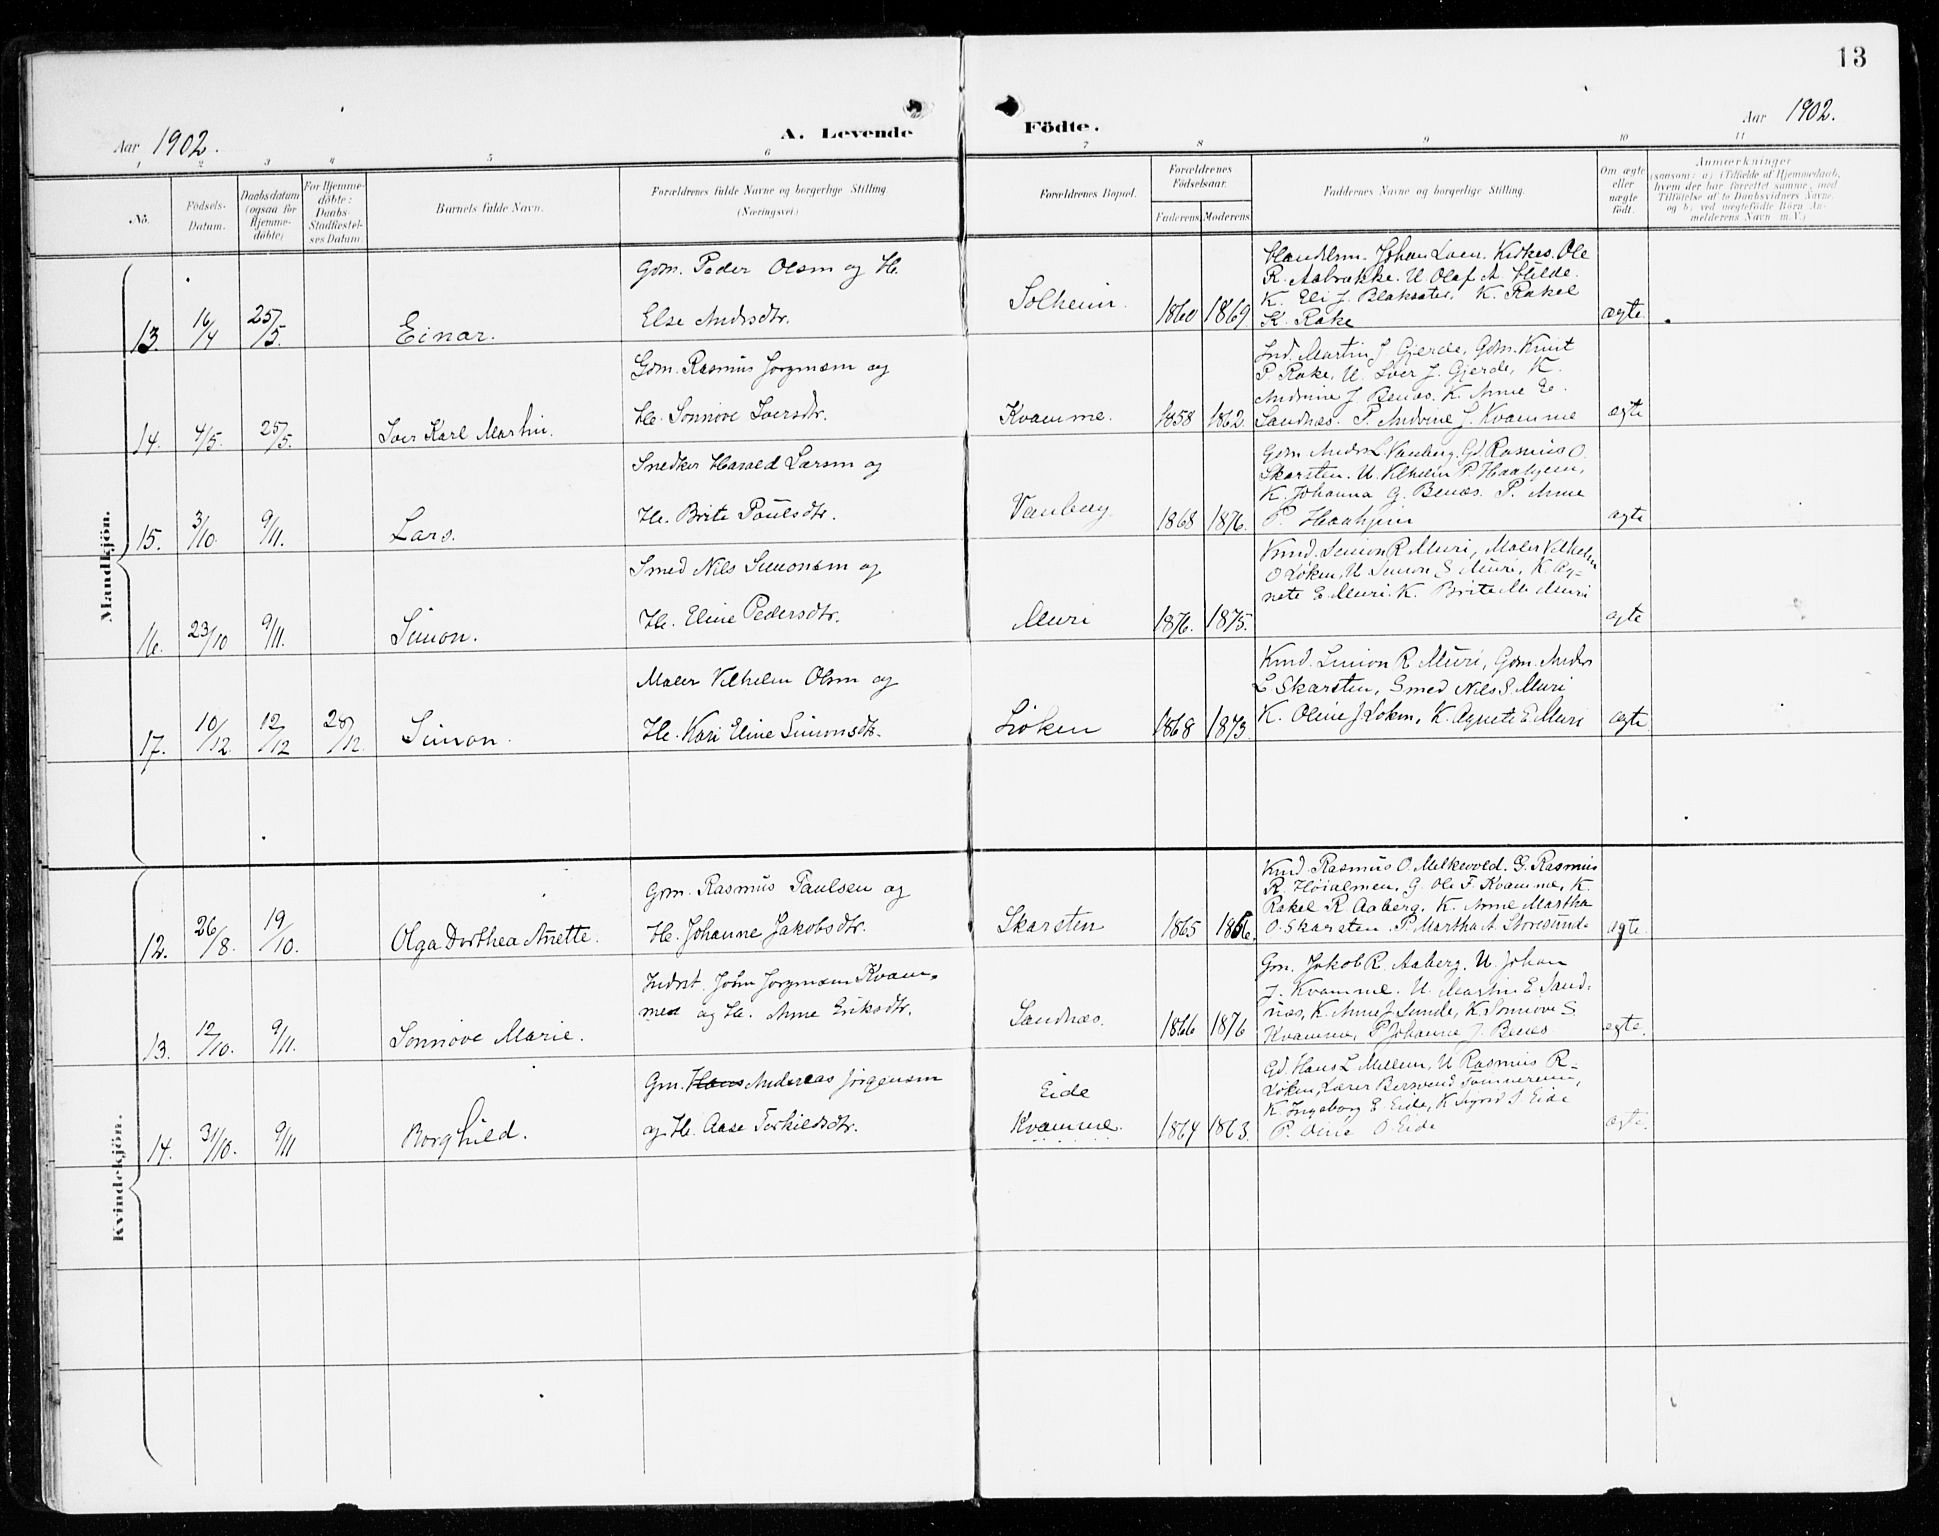 13
Aar 1902.
A. Levende Födte.
Aar 1902.
1 2 3 4 5 6 7 8 9 10 11
No.
Födsels-
Datum.
Daabsdatum
(ogsaa for
Hjemme-
döbte)
For Hjemme-
döbte:
Daabs-
Stadfæstel-
ses Datum.
Barnets fulde Navn.
Forældrenes fulde Navne og borgerlige Stilling
(Næringsvei.)
Forældrenes Bopæl.
Forældrenes
Födselsaar.
Faderens Moderens
Faddernes Navne og borgerlige Stilling.
Om ægte
eller
uægte
födt.
Anmærkninger
(saasom: a) i Tilfælde af Hjemmedaab,
hvem der har forrettet samme, med
Tilföielse af to Daabsvidners Navne,
og b) ved uægtefödte Börn An-
melderens Navn m. V.)
Mandkjön.
13. 16/4 25/5. Einar.
Gdm. Peder Olsen og H.
Else Andrsdtr.
Solheim. 1860 1869
Handelsm. Johan Loen. Kirkes. Ole
R. Aabrække. U. Olaf A. Hilde.
K. Eli J. Blaksæter. K. Rakel
K. Rake
ægte
14. 4/5. 25/5. Iver Karl Martin.
Gdm. Rasmus Jörgensen og
H. Sönnöve Iversdtr.
Kvamme. 1858 1862.
Ind. Martin J. Gjerde, Gdm. Knut
P. Rake, U. Iver J. Gjerde, K.
Andrine J. Benæs. K. Anne E.
Sandnæs. P. Andrine J. Kvamme
ægte
15. 3/10. 9/11. Lars.
Snedker Harald Larsen og
H. Brite Paulsdtr.
Vanberg 1868 1876.
Gdm Andr. L. Vanberg. Gd Rasmus O.
Skarsten. U. Vilhelm P. Haahjem,
K. Johanna G. Benæs. P. Anne
P. Haahjem
ægte
16. 23/10 9/11. Simon.
Smed Nils Simonsen og
H. Eline Pedersdtr.
Muri 1876. 1875.
Kmd. Simon R. Muri, Maler Vilhelm
O Löken, U Simon S Muri, K. Ag-
nete E Muri. K. Brite M. Muri
ægte
17. 10/12 12/12 28/12. Simon.
Maler Vilhelm Olsen og
H. Kari Eline Simonsdtr.
Löken 1868 1873.
Kmd. Simon R. Muri, Gdm. Anders
L Skarsten, Smed Nils S. Muri
K. Oline J Löken, K. Agnete E Muri
ægte
Kvindekjön.
12. 26/8. 19/10. Olga Dorthea Anette.
Gdm. Rasmus Paulsen og
H. Johanne Jakobsdtr.
Skarsten 1865
Kmd. Rasmus O. Melkevold. G. Rasmus
R. Höialmen, G. Ole F. Kvamme, K.
Rakel R. Aaberg, K. Anne Martha
O. Skarsten. P Martha A. Storesunde
ægte.
13. 12/10. 9/11. Sönnöve Marie.
Inderst. John Jörgensen Kvam-
men og H. Anne Eriksdtr.
Sandnæs. 1866 1876
Gm. Jakob R. Aaberg. U. Johan
J. Kvamme. U. Martin E. Sand-
næs, K. Anne J Sunde, K. Sönnöve S
Kvamme, P Johanne J. Benæs
ægte.
14. 31/10. 9/11 Borghild.
Gm. Hans Andreas Jörgensen
og H. Aase Terkildsdtr.
Eide
Kvamme. 1864 1863.
Gd. Hans L Mellem, U Rasmus R-
Löken, Lærer Berwend Tonnereim,
K. Ingeborg E Eide, K Sigrid S Eide
P. Oline O. Eide
ægte.